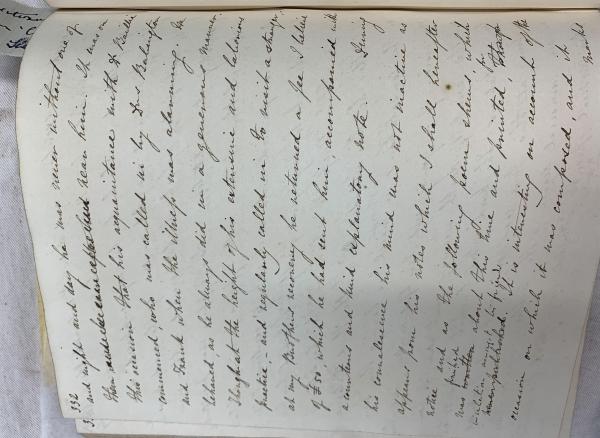 332
3. and night and day he was never without one of
them near him. It was on
this occasion that his acquaintance with Dr Baillie
commenced, who was called in by Drs Babington
and Frank when the illness was alarming. He
behaved, as he always did in a generous manner
though at the height of his extensive and laborious
practice, and regularly called in to visit a stranger,
at my brothers recovery he returned a fee I believe
of £50 which he had sent him, accompanied with
a courteous and kind explanatory note. During
his convalescence his mind was not inactive as
appears from his notes which I shall hereafter
notice and as the following poem shews, which
was written about this time and printed, tho
finished for
never published. It is interesting on account of the
occasion on which it was composed, and its
marks